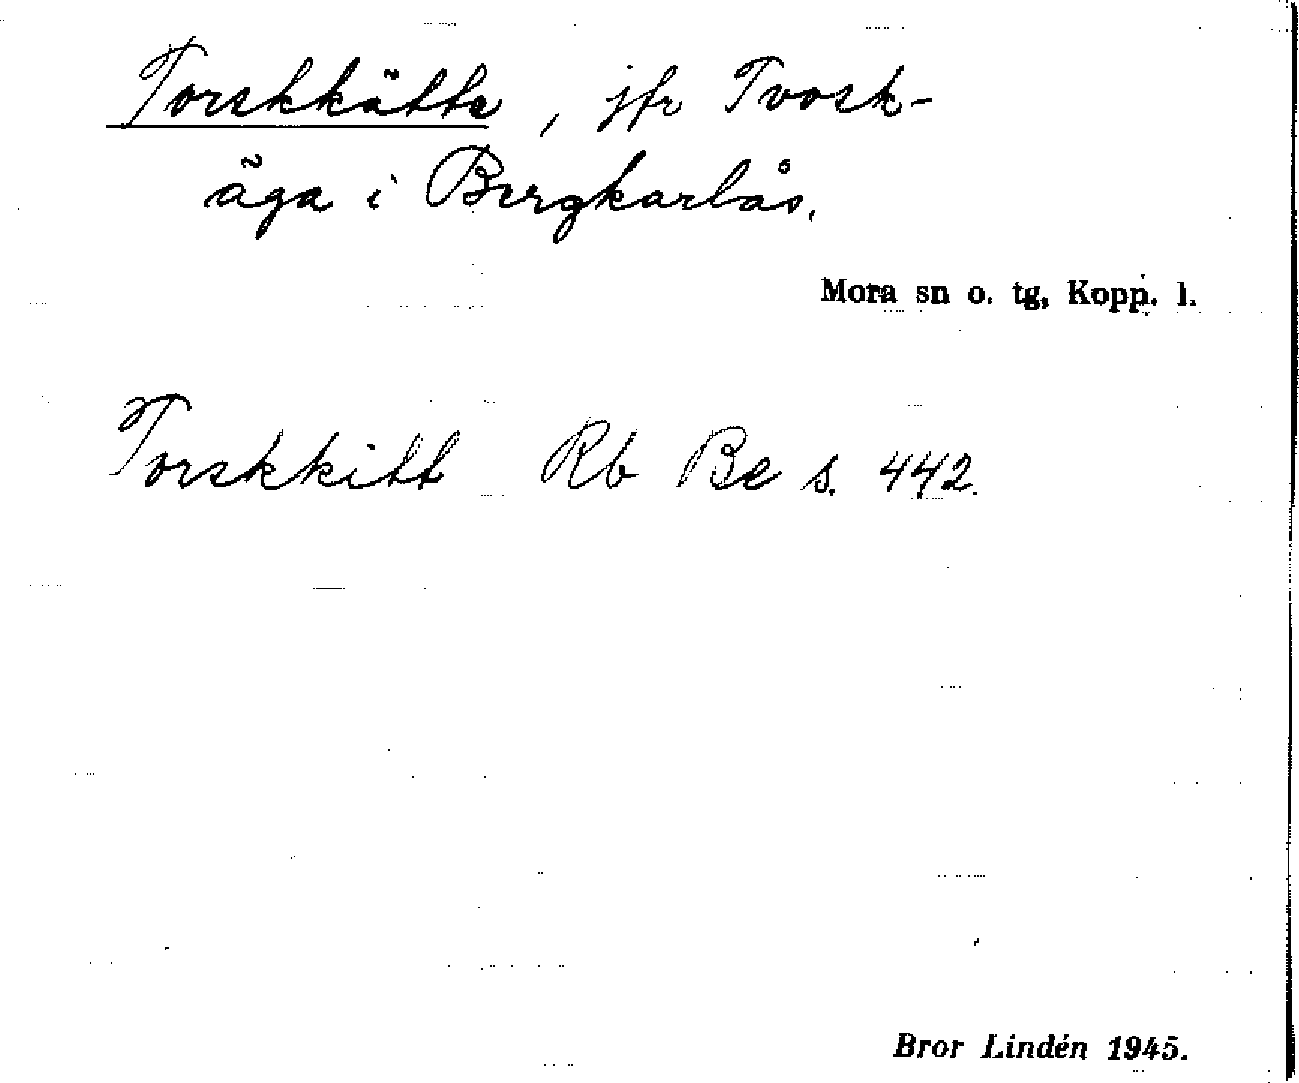 Torskkätte, jfr Tvosk-
äga i Bergkarlås.
Mora sn o. tg, Kopp. l.
Torskkitt Rb Be s. 442.
Bror Lindén 1945.